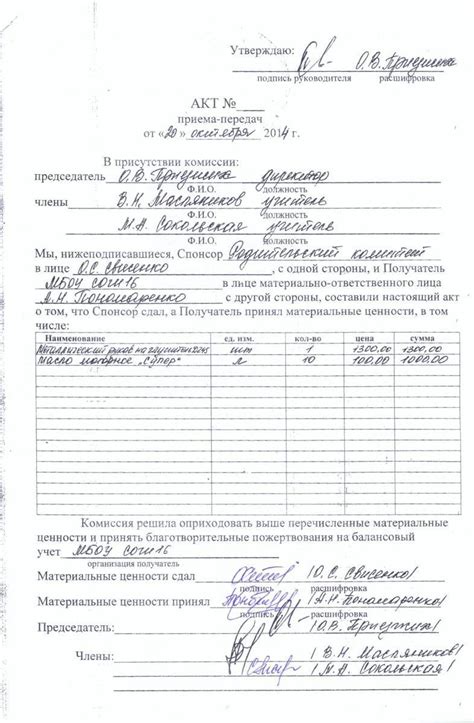 Утверждаю: О.В. Припузина
подпись руководителя расшифровка
АКТ №____
приема-передач
от «20» октября 2014 г.
В присутствии комиссии:
председатель О.В. директор
Ф.И.О. должность
члены В.Н. Масляников учитель
Ф.И.О. должность
М.А. Сокольская учитель
Ф.И.О. должность
Мы, нижеподписавшиеся, Спонсор Родительский комитет
в лице О.С. Свисенко, с одной стороны, и Получатель
МБОУ СОШ 16 в лице материально-ответственного лица
А.Н. Пономаренко с другой стороны, составили настоящий акт
о том, что Спонсор сдал, а Получатель принял материальные ценности, в том
числе:
Наименование ед. изм. кол-во цена сумма
Металлический шт 1 1300,00 1300,00
Масло моторное „Супер" л 10 100,00 1000,00
Комиссия решила оприходовать выше перечисленные материальные
ценности и принять благотворительные пожертвования на балансовый
учет МБОУ СОШ 16
организация получатель
Материальные ценности сдал /О.С. Свисенко/
подпись расшифровка
Материальные ценности принял /А.Н. Пономаренко/
подпись расшифровка
Председатель: /О.В.
Члены: /В.Н. Масляников/
/М.А. Сокольская/